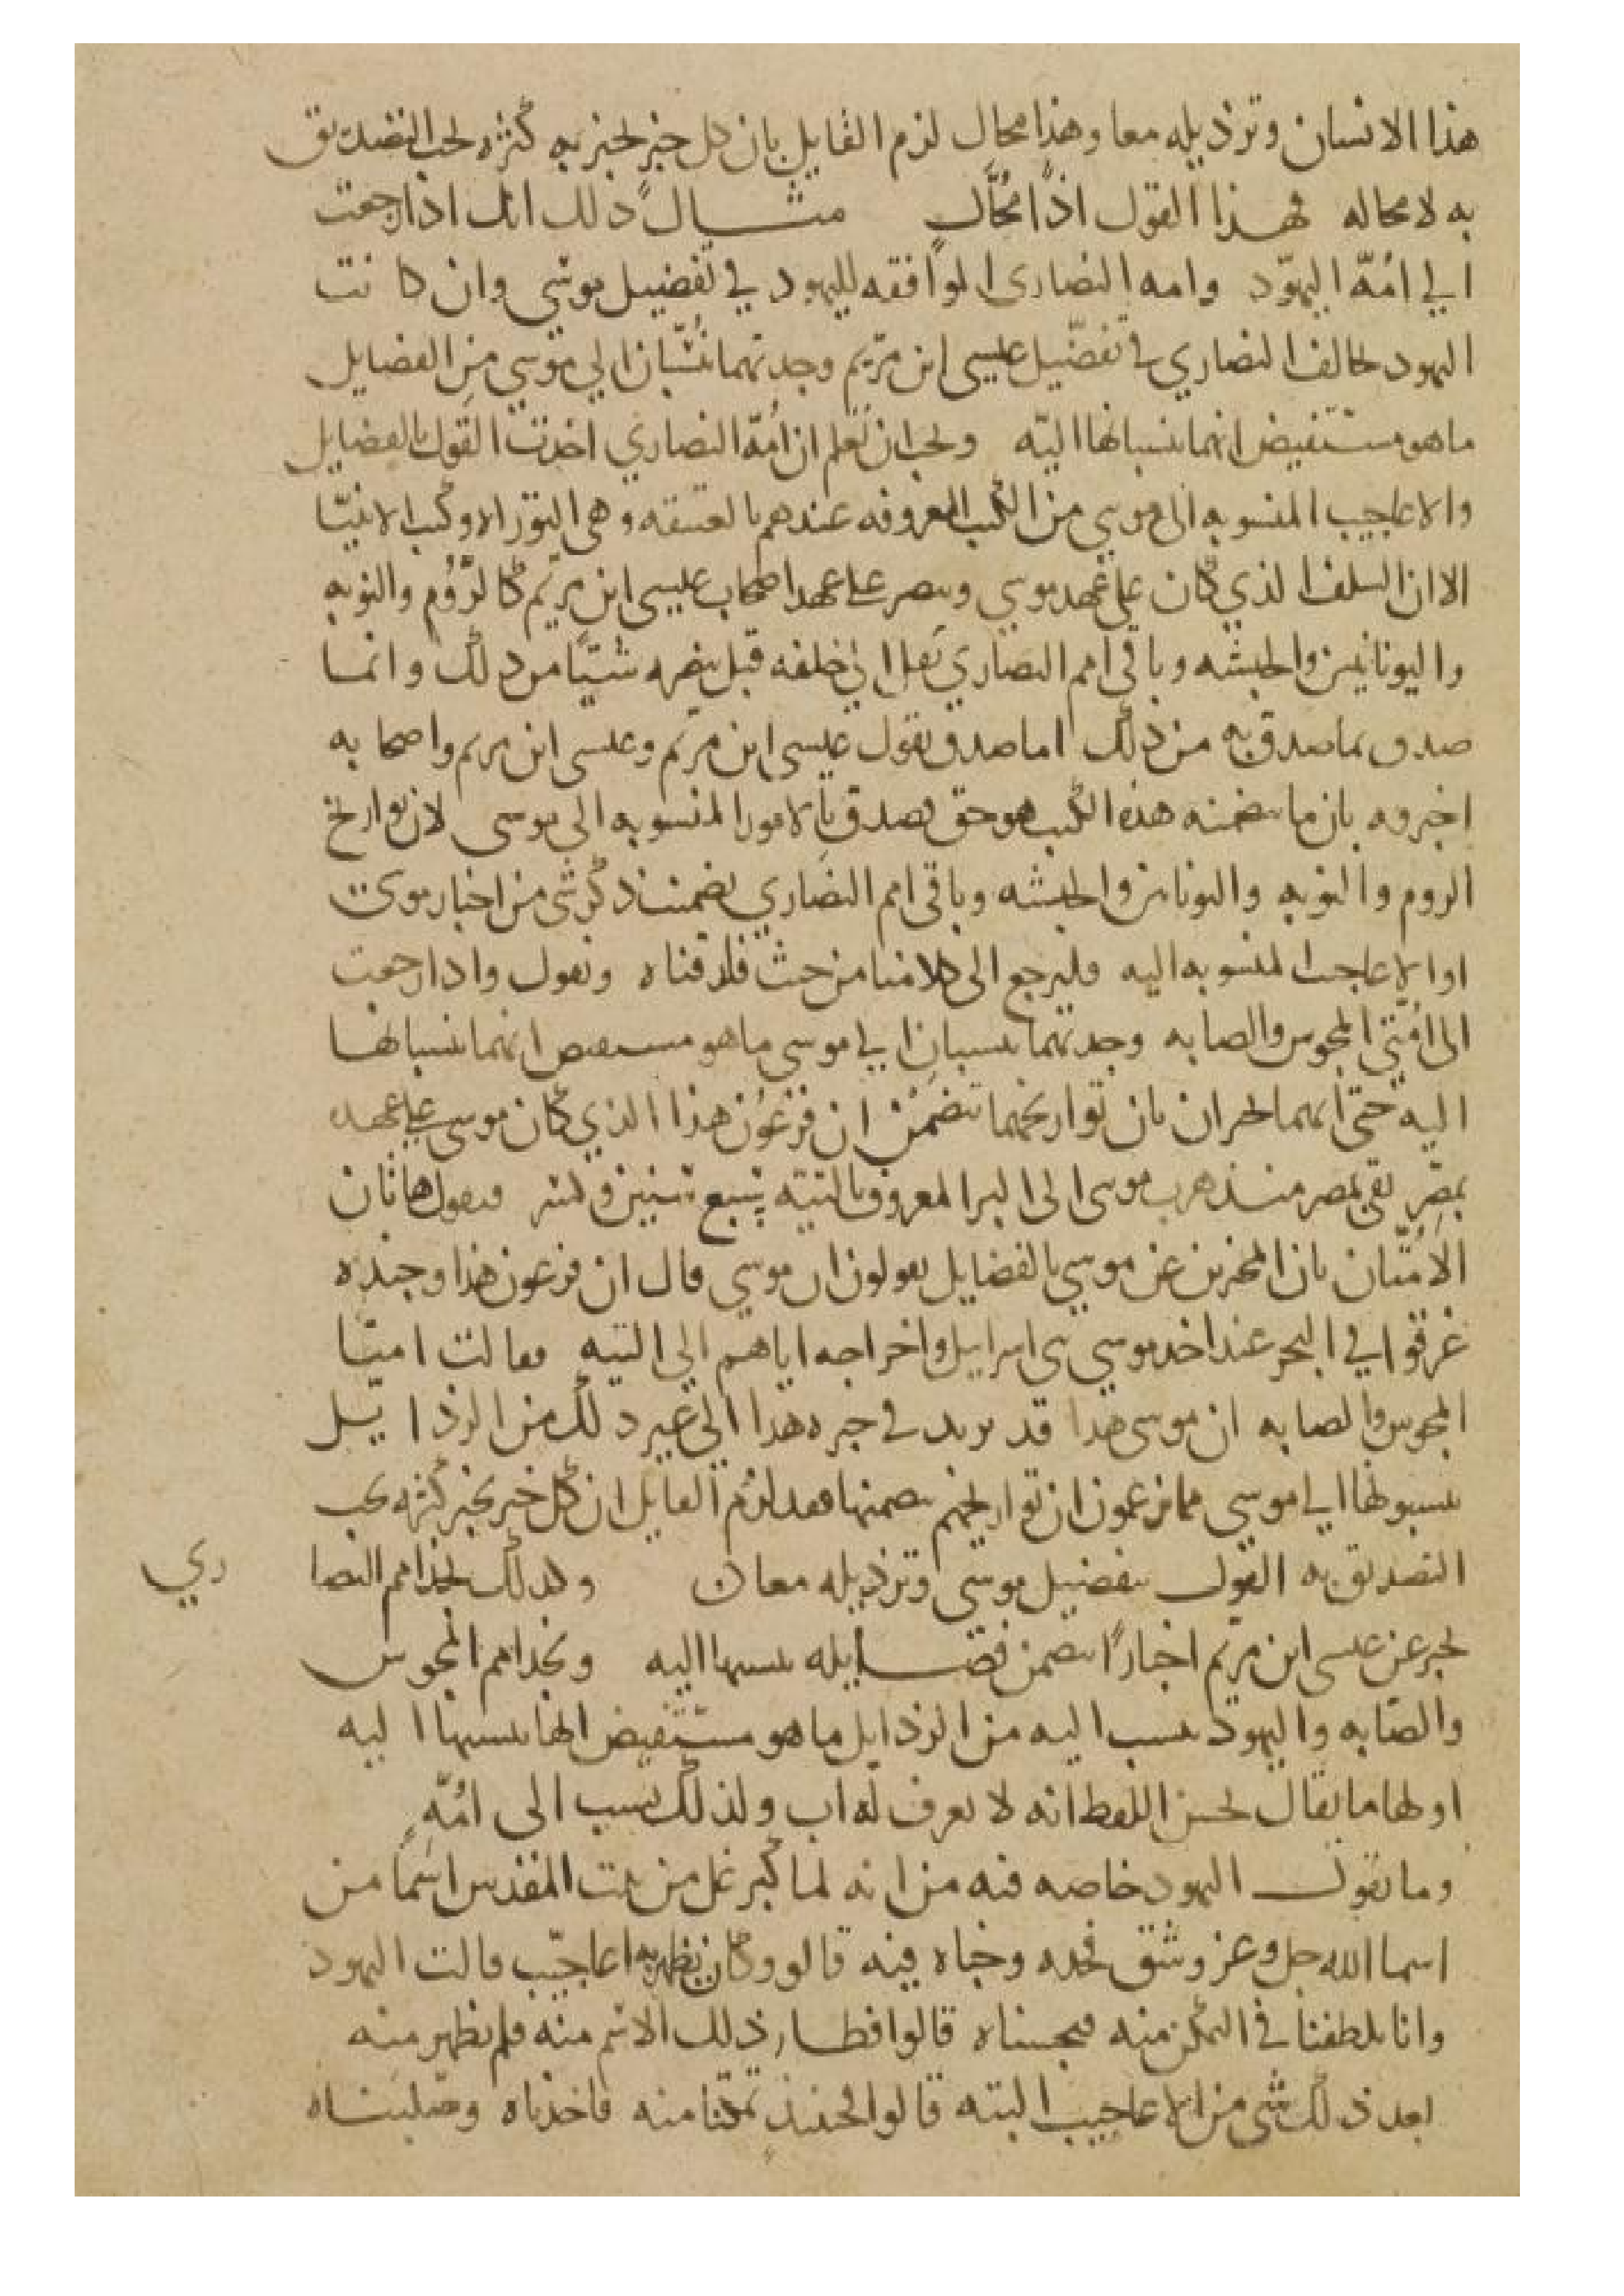 هذا الانسان وترذيله معا وهذا محال لزم القايل بان كل خبر تخبر به كثره يجب التصديق
به لا محاله فهذا القول اذًا محُال مثال ذلك انك اذا رجعت
الي امُّه اليهوّد وامه النصارى الموافقه لليهود في تفضيل موسي وان كانت
اليهود تخالف النصاري في تفضيل عيسى ابن مريم وجدتهما تنسُبان الي موسي من الفضايل
ما هو مستفيض انهما ينسبانها اليه ويجب ان تعلم ان امُّة النصاري اخذت القول بالفضايل
والاعاجيب المنسوبه الى موسي من الكتب المعروفه عندهم بالعتيقه وهى التوراه وكتب الانبيّا
الا ان السلف الذي كان علي عهد موسي وتنصر على عهد اصحاب عيسى ابن مريم كالرّوُم والنوبه
واليونانيين والحبشه وباقي امم النصاري نقل الي خلفه قبل تنصره شيًّا من ذلك وانما
صدق بما صدق به من ذلك اما صدق بقول عيسى ابن مريم وعيسى ابن مريم واصحابه
اخبروه بان ما تضمنه هذه الكتب هو حق فصدق بالامور المنسوبه الى موسى لان تواريخ
الروم والنوبه واليونانين والحبشه وباقي امم النصَاري تضمنت ذكر شى من اخبار موسى
او الاعاجيب المنسوبه اليه فلنرجع الى كلامنا من حيث فارقناه ونقول واذا رجعت
الى امُّتي المجوس والصابه وجدتهما ينسبان الي موسي ما هو مستفيض انهما ينسبانها
اليه حتى انهما يخبران بان تواريخهما تتضمَن ان فرعَون هذا الذي كان موسى على عهده
بمصِر بقي بمصر منذ هرب موسى الى البر المعروف بالتيه سبع سنين فيقول هاتان
الامُتّان بان المخبرين عن موسي بالفضايل يقولون ان موسي قال ان فرعون هذا وجنده
غرقوا في البحر عند اخد موسي بني اسراييل واخراجه اياهم الي التيه فقالت امتا
المجوس والصابه ان موسى هذا قد يزيد في خبره هذا الي غير ذلك من الرذايل
ينسبونها الي موسي مما يزعمون ان تواريخهم تضمنها فقد لزم القايل ان كل خبر يخبر كثره يجب
التصديق به القول بتفضيل موسي وترذيله معا وكذلك تجد امم النصاري
تخبر عن عيسى ابن مريم اخبارًا تتضمن فضايله ينسبها اليه وتجد امم المجوس
والصَابه واليهود ينسب اليه من الرذايل ما هو مستفيض انها ينسبها اليه
اولها ما يقال بحسن اللفظ انه لا يعرف له اب ولذلك نسب الى امُّهِ
وما تقول اليهود خاصه فيه من انه لما كبر نقل من بيت المقدس اسمًا من
اسما الله جل وعز وشق فخده وخباه فيه قالو وكان يظهر به اعاجيّب قالت اليهود
وانا تلطفنا في التمكن منه فحبسناه قالوا فطار ذلك الاسم منه فلم يظهر منه
بعد ذلك شي من الاعاجيب البته قالوا فحينيذ تمكنا منه فاخذناه وصلبناه